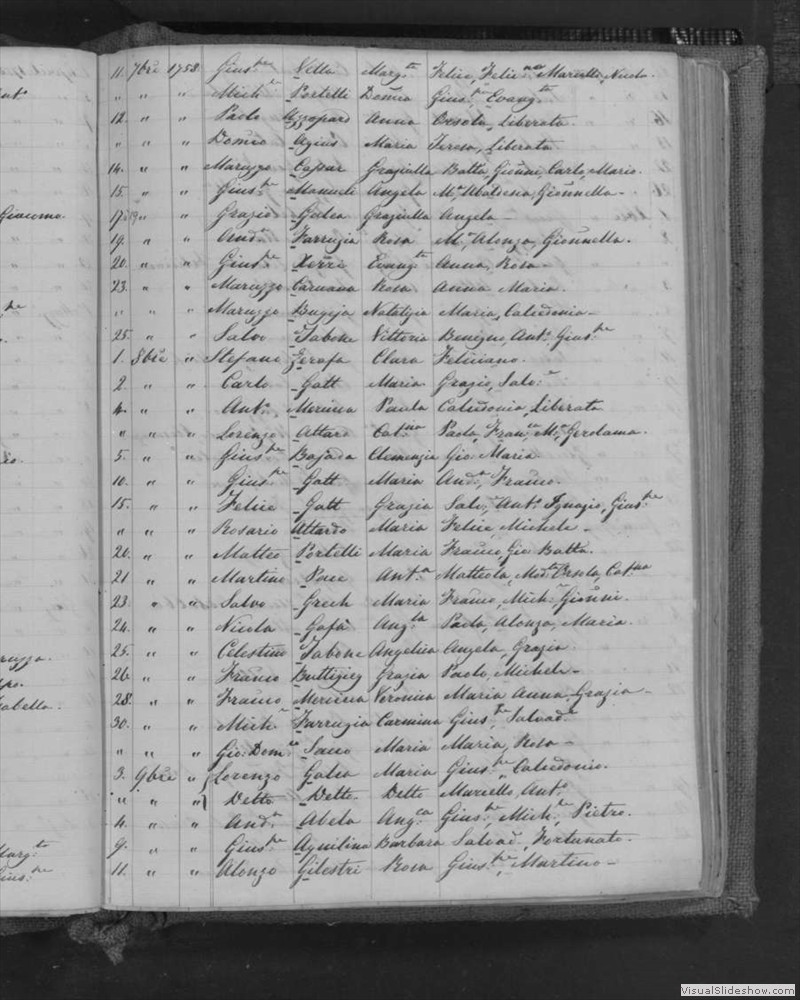 11. 7bre 1758 Gius.pe Vella Marg.ta Felice, Felic.na Marcello, Nicola.
" " " Mich.l Portelli Domca Gius.pe Evang.ta
12. " " Paolo Azzopard Anna Orsola, Liberata.
" " " Domco Agius Maria Teresa, Liberata
14. " " Maruzzo Caspar Graziulla Batta, Gionni, Carlo, Mario.
15. " " Gius.pe Manueli Angela M.a Gionnella.
17. 19 " " Grazio Galea Graziulla Angela
19. " " And.a Farrugia Rosa M.a Alonza, Gionnella.
20. " " Gius.pe Xerri Evang.ta Anna, Rosa
23. " " Maruzzo Caruana Rosa Anna Maria.
" " " Maruzzo Bugeja Natalizia Maria, Calcidonia
25. " " Salvo Tabone Vittoria Benigno, Ant.o Gius.pe
1. 8bre " Stefano Zerafa Clara Feliciano.
2. " " Carlo Gatt Maria Grazio, Salv.r
4. " " Ant.o Mercieca Paula Calcidonia, Liberata
" " " Lorenzo Attard Cat.na Paola, Fran.ca M.a Gerolama.
5. " " Gius.pe Bajada Clemenzia Gio Maria
10. " " Gius.pe Gatt Maria And.a Franco.
15. " " Felice Gatt Grazia Salv.r Ant.o Ignazio, Gius.pe
" " " Rosario Attardo Maria Felice, Michele
20. " " Matteo Portelli Maria Franco, Gio Batta.
21 " " Martino Pace Ant.a Matteola, Mod.ta Orsola, Cat.na
23. " " Salvo Grech Maria Franco, Mich.l Gionni.
24. " " Nicola Gafà Ang.la Paola, Alonzo, Maria.
25. " " Celestino Tabone Angelica Angela, Grazia.
26 " " Franco Buttigieg Grazia Paolo, Michele
28. " " Franco Mercieca Veronica Maria Anna, Grazia
30. " " Mich.l Farrugia Carmina Gius.pe Salvad.r
" " " Gio: Dom.co Saco Maria Maria, Rosa
3. 9bre " Lorenzo Galea Maria Gius.pe, Calcidonio.
" " " Detto Detto Detto Marcello, Ant.o
4. " " And.a Abela Ang.ca Gius.pe Mich.le Pietro.
9. " " Gius.pe Aquilina Barbara Salvad.r Fortunato.
11. " " Alonzo Gilestri Rosa Gius.pe, Martino
Giacomo.
Marg.ta
Gius.pe
VisualSlideshow.com